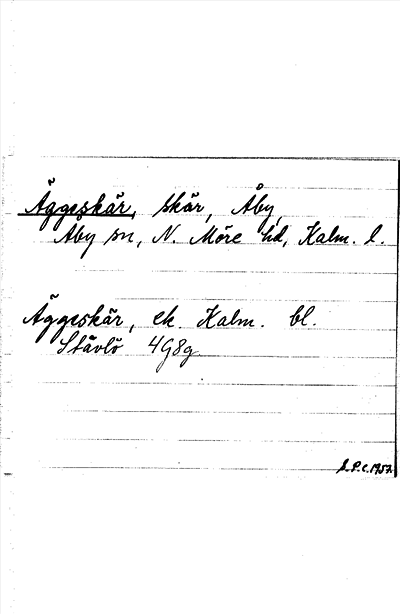 Äggeskär, skär, Åby,
Åby sn, N. Möre hd, Kalm. l.
Äggeskär, ek Kalm. bl.
Stävlö 4G8g
L.P.C. 1957.